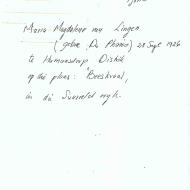 Maria Magdalena van Lingen
(gebore Du Plooy) 28 Sept 1926
te Humansdorp Distrik
op die plaas: "Beeskraal,
in die Suurveld wyk.